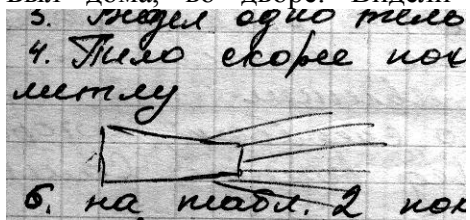 был дома, во дворе. Видели
3. Видел одно тело
4. Тело скорее пох
метлу
6. на табл. 2 пох